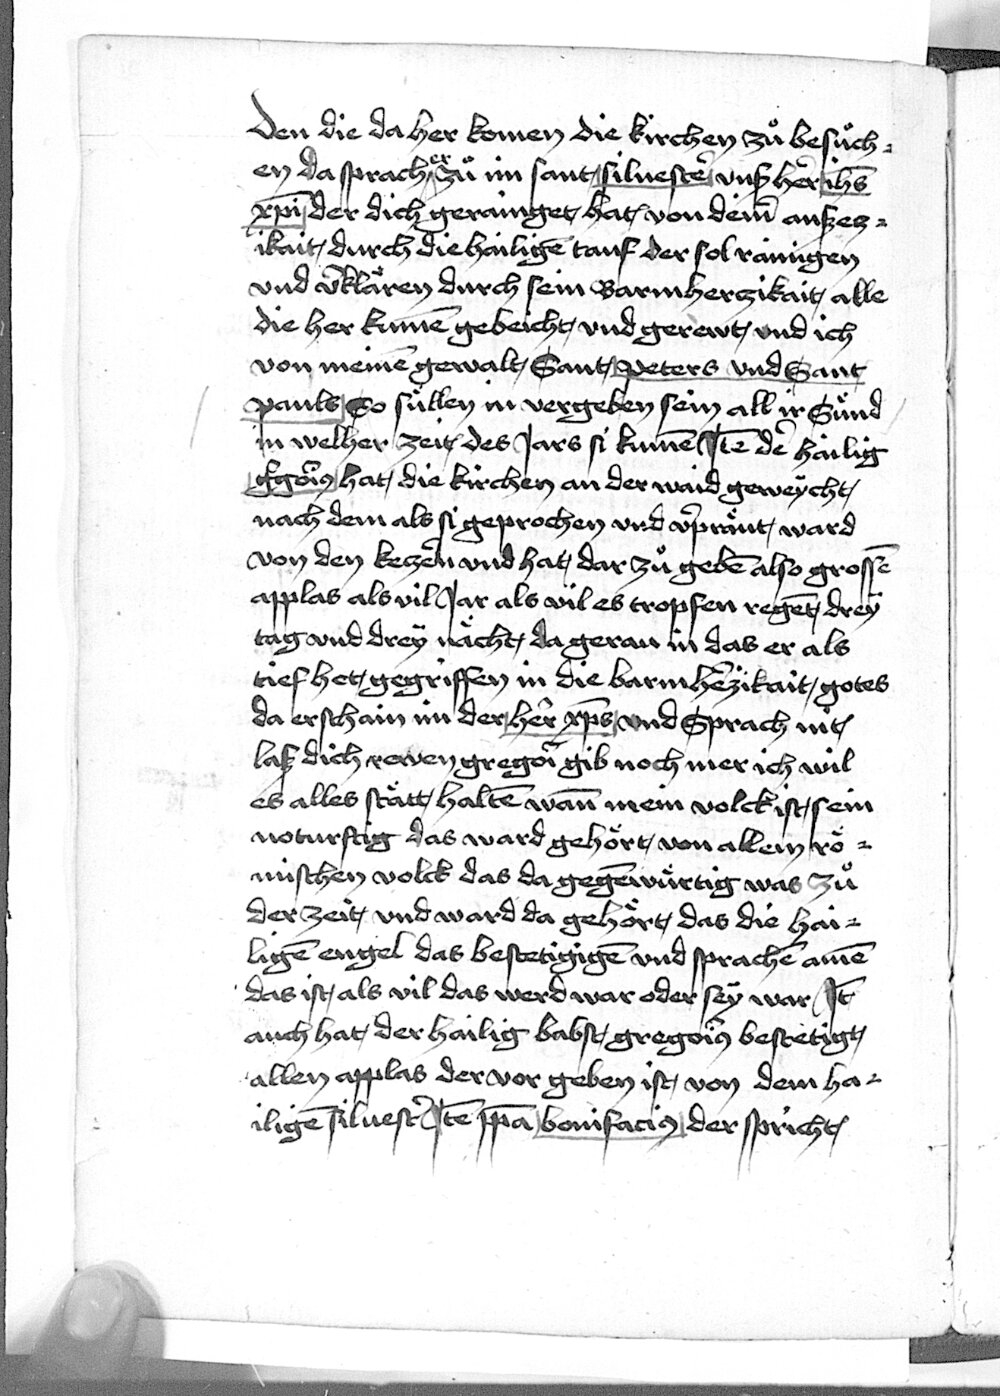 Den die da her komen die kirchen zů besůch-
en da sprach er zů im sant silvester̃ vnß her̃ ihs̄
xp̄i der dich gerainget hat von deim̄ außez-
ikait durch die hailigē tauf der sol rainigen
vnd v̄klären durch sein Barmherzikait alle
die her kumē gebeicht vnd gerewt vnd ich
von meinē gewalt Sant peters vnd Sant
pauls So süllen in vergeben sein all ir Sünd
in welher zeit des Jars si kumē Itē der̃ hailig
g̃goriꝰ hat die kirchen an der waid geweycht
nach dem als si geprochen vnd v̄pränt ward
von den kezern̄ vnd hat dar zů gebē also grossē
applas als vil Jar als vil es tropfen regēt dreÿ
tag vnd dreÿ nächt da gerau in das er als
tief het gegriffen in die barmhēzikait gotes
da erschain im der her̃ xp̄s vnd Sprach nit
laß dich rewen gregoi᷑ gib noch mer ich wil
es alles stätt haltē wañ mein volck ist sein
noturftig das ward gehört von allem rö-
mischen volck das da gegēwürtig was zů
der zeit vnd ward da gehört das die hai-
ligē engel das bestetigigē vnd sprachē amē
das ist als vil das werd war oder seÿ war It̄
auch hat der hailig babst gregoriꝰ bestetigt
allen applas der vor geben ist von dem ha-
iligē silvestr̃ Itē ppā bonifaciꝰ der spricht